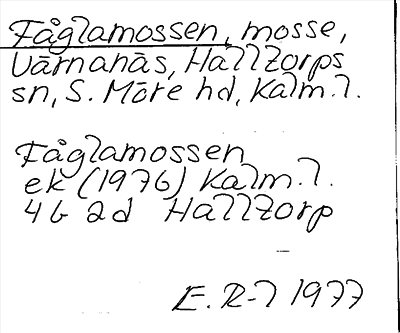 Fåglamossen, mosse,
Värnanäs, Halltorps
sn, S. Möre hd, Kalm. l.
Fåglamossen
ek (1976) Kalm. l.
4G 2d Halltorp
E. R-l 1977